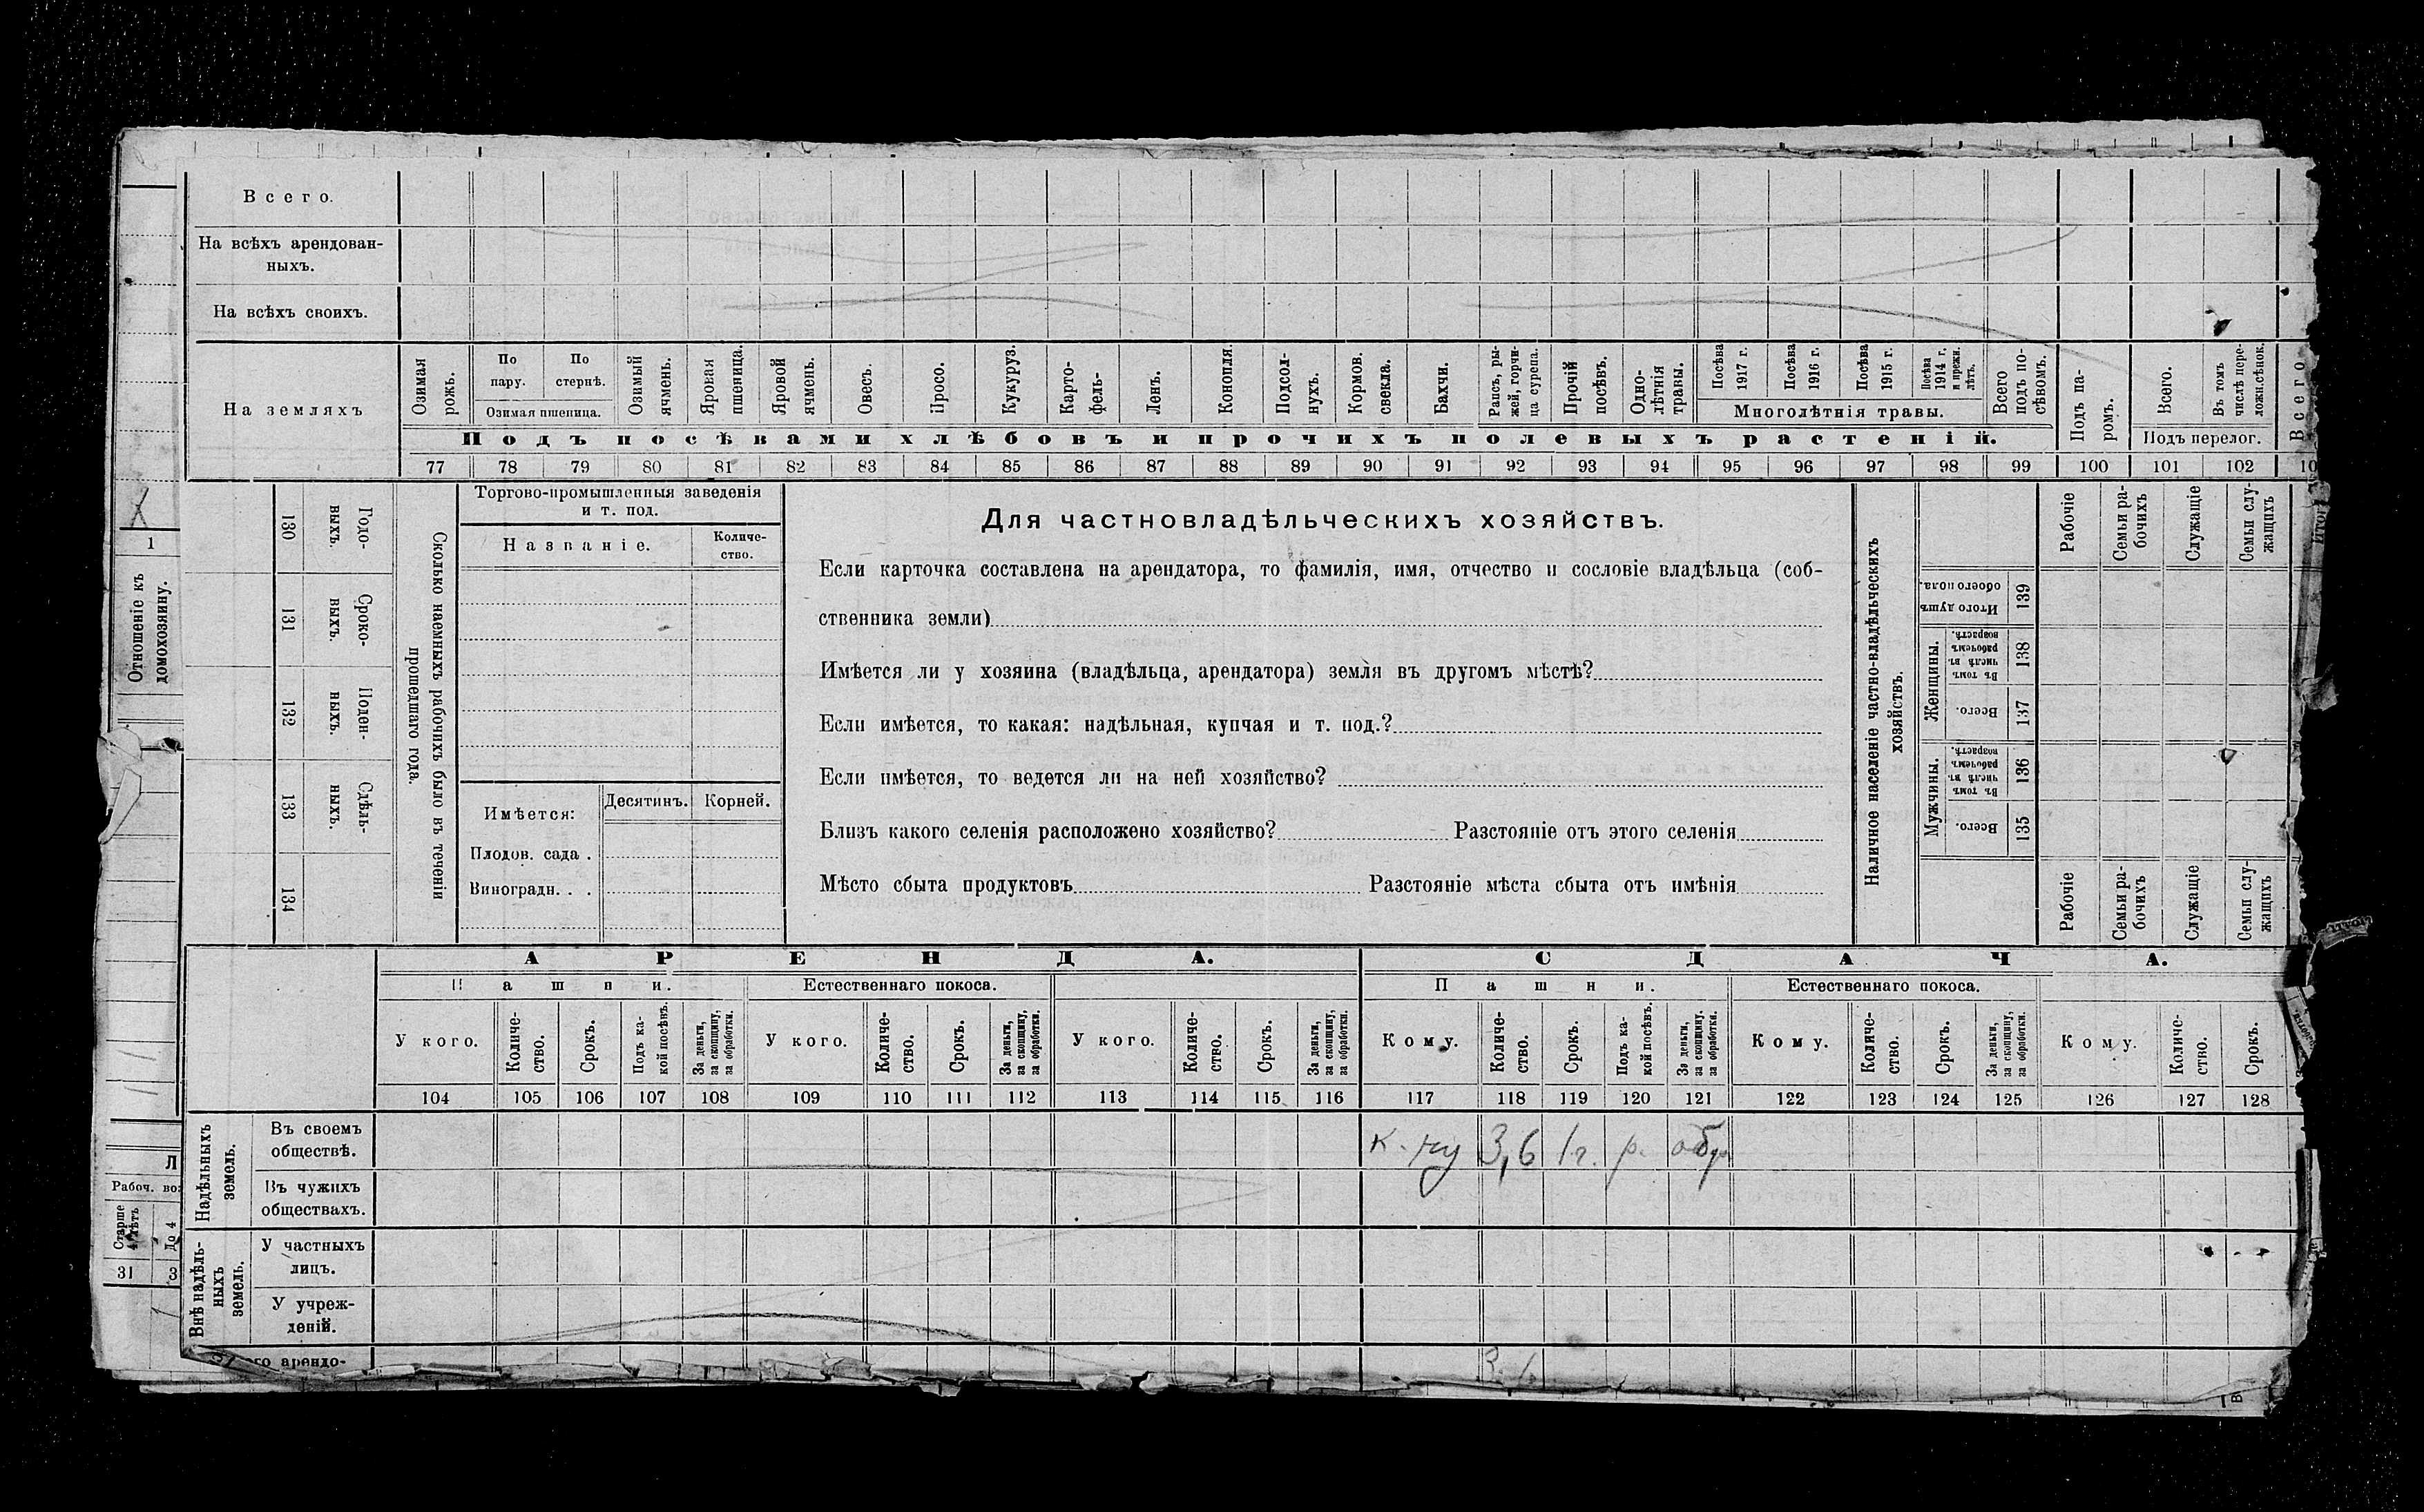 Всего.
На всѣхъ арендован-
ныхъ.
На всѣхъ своихъ.
На земляхъ
Озимая рожь.
По пару.
По стернѣ.
Озимая пшеница.
Озимый ячмень.
Яровая пшеница.
Яровой ячмень.
Овесъ.
Просо.
Кукуруз.
Карто-
фель-
Ленъ.
Конопля.
Подсол-
нухъ.
Кормов.
свекла.
Бахчи.
Рапсъ, ры-
жей, горчи-
ца сурепа.
Прочій
посѣвъ.
Одно-
лѣтнія
травы.
Посѣва
1917 г.
Посѣва
1916 г.
Посѣва
1915 г.
Посѣва
1914 г.
и прежн.
лѣтъ.
Многолѣтнія травы.
Всего
подъ по-
сѣвомъ.
Подъ па-
ромъ.
Всего.
Въ томъ
числѣ пере-
лож.сѣнок.
Подъ перелог.
Всего
Подъ посѣвами хлѣбовъ и прочихъ полевыхъ растеній.
77 78 79 80 81 82 83 84 85 86 87 88 89 90 91 92 93 94 95 96 97 98 99 100 101 102 10
1
Отношеніе къ
домохозяину.
130
Годо-
выхъ.
131
Сроко-
выхъ.
132
Поден-
ныхъ.
133
Сдѣль-
ныхъ.
134
Сколько наемныхъ рабочихъ было въ теченіи
прошедшаго года.
Торгово-промышленныя заведенія
и т. под.
Названіе.
Количе-
ство.
Имѣется:
Десятинъ.
Корней.
Плодов. сада .
Виноградн. . .
Для частновладѣльческихъ хозяйствъ.
Если карточка составлена на арендатора, то фамилія, имя, отчество и сословіе владѣльца (соб-
ственника земли)
Имѣется ли у хозяина (владѣльца, арендатора) земля въ другомъ мѣстѣ?
Если имѣется, то какая: надѣльная, купчая и т. под.?
Если имѣется, то ведется ли на ней хозяйство?
Близъ какого селенія расположено хозяйство? Разстояніе отъ этого селенія
Мѣсто сбыта продуктовъ Разстояніе мѣста сбыта отъ имѣнія
Наличное населеніе частно-владѣльческихъ
хозяйствъ.
Рабочіе
Семьи ра-
бочихъ
Служащіе
Семьи слу-
жащихъ
Итого душъ
обоего пола.
139
Женщины.
Въ томъ
числѣ въ
рабочемъ
возрастѣ.
138
Всего.
137
Мужчины.
Въ томъ
числѣ въ
рабочемъ
возрастѣ.
136
Всего.
135
Рабочіе
Семьи ра-
бочихъ
Служащіе
Семьи слу-
жащихъ
АРЕНДА.
СДАЧА.
Пашни.
Естественнаго покоса.
Пашни.
Естественнаго покоса.
У кого.
Количе-
ство.
Срокъ.
Подъ ка-
кой посѣвъ.
За деньги,
за скопщину,
за обработки.
У кого.
Количе-
ство.
Срокъ.
За деньги,
за скопщину,
за обработки.
У кого.
Количе-
ство.
Срокъ.
За деньги,
за скопщину,
за обработки.
Кому.
Количе-
ство.
Срокъ.
Подъ ка-
кой посѣвъ.
За деньги,
за скопщину,
за обработки.
Кому.
Количе-
ство.
Срокъ.
За деньги,
за скопщину,
за обработки.
Кому.
Количе-
ство.
Срокъ.
104 105 106 107 108 109 110 111 112 113 114 115 116 117 118 119 120 121 122 123 124 125 126 127 128
Надѣльныхъ
земель.
Въ своемъ
обществѣ.
к-ну 3,6 1г. р. обр
Въ чужихъ
обществахъ.
Внѣ надѣль-
ныхъ
земель.
У частныхъ
лицъ.
У учреж-
деній.
го арендо-
Рабоч. во
Старше
4 лѣтъ
До 4
31 3